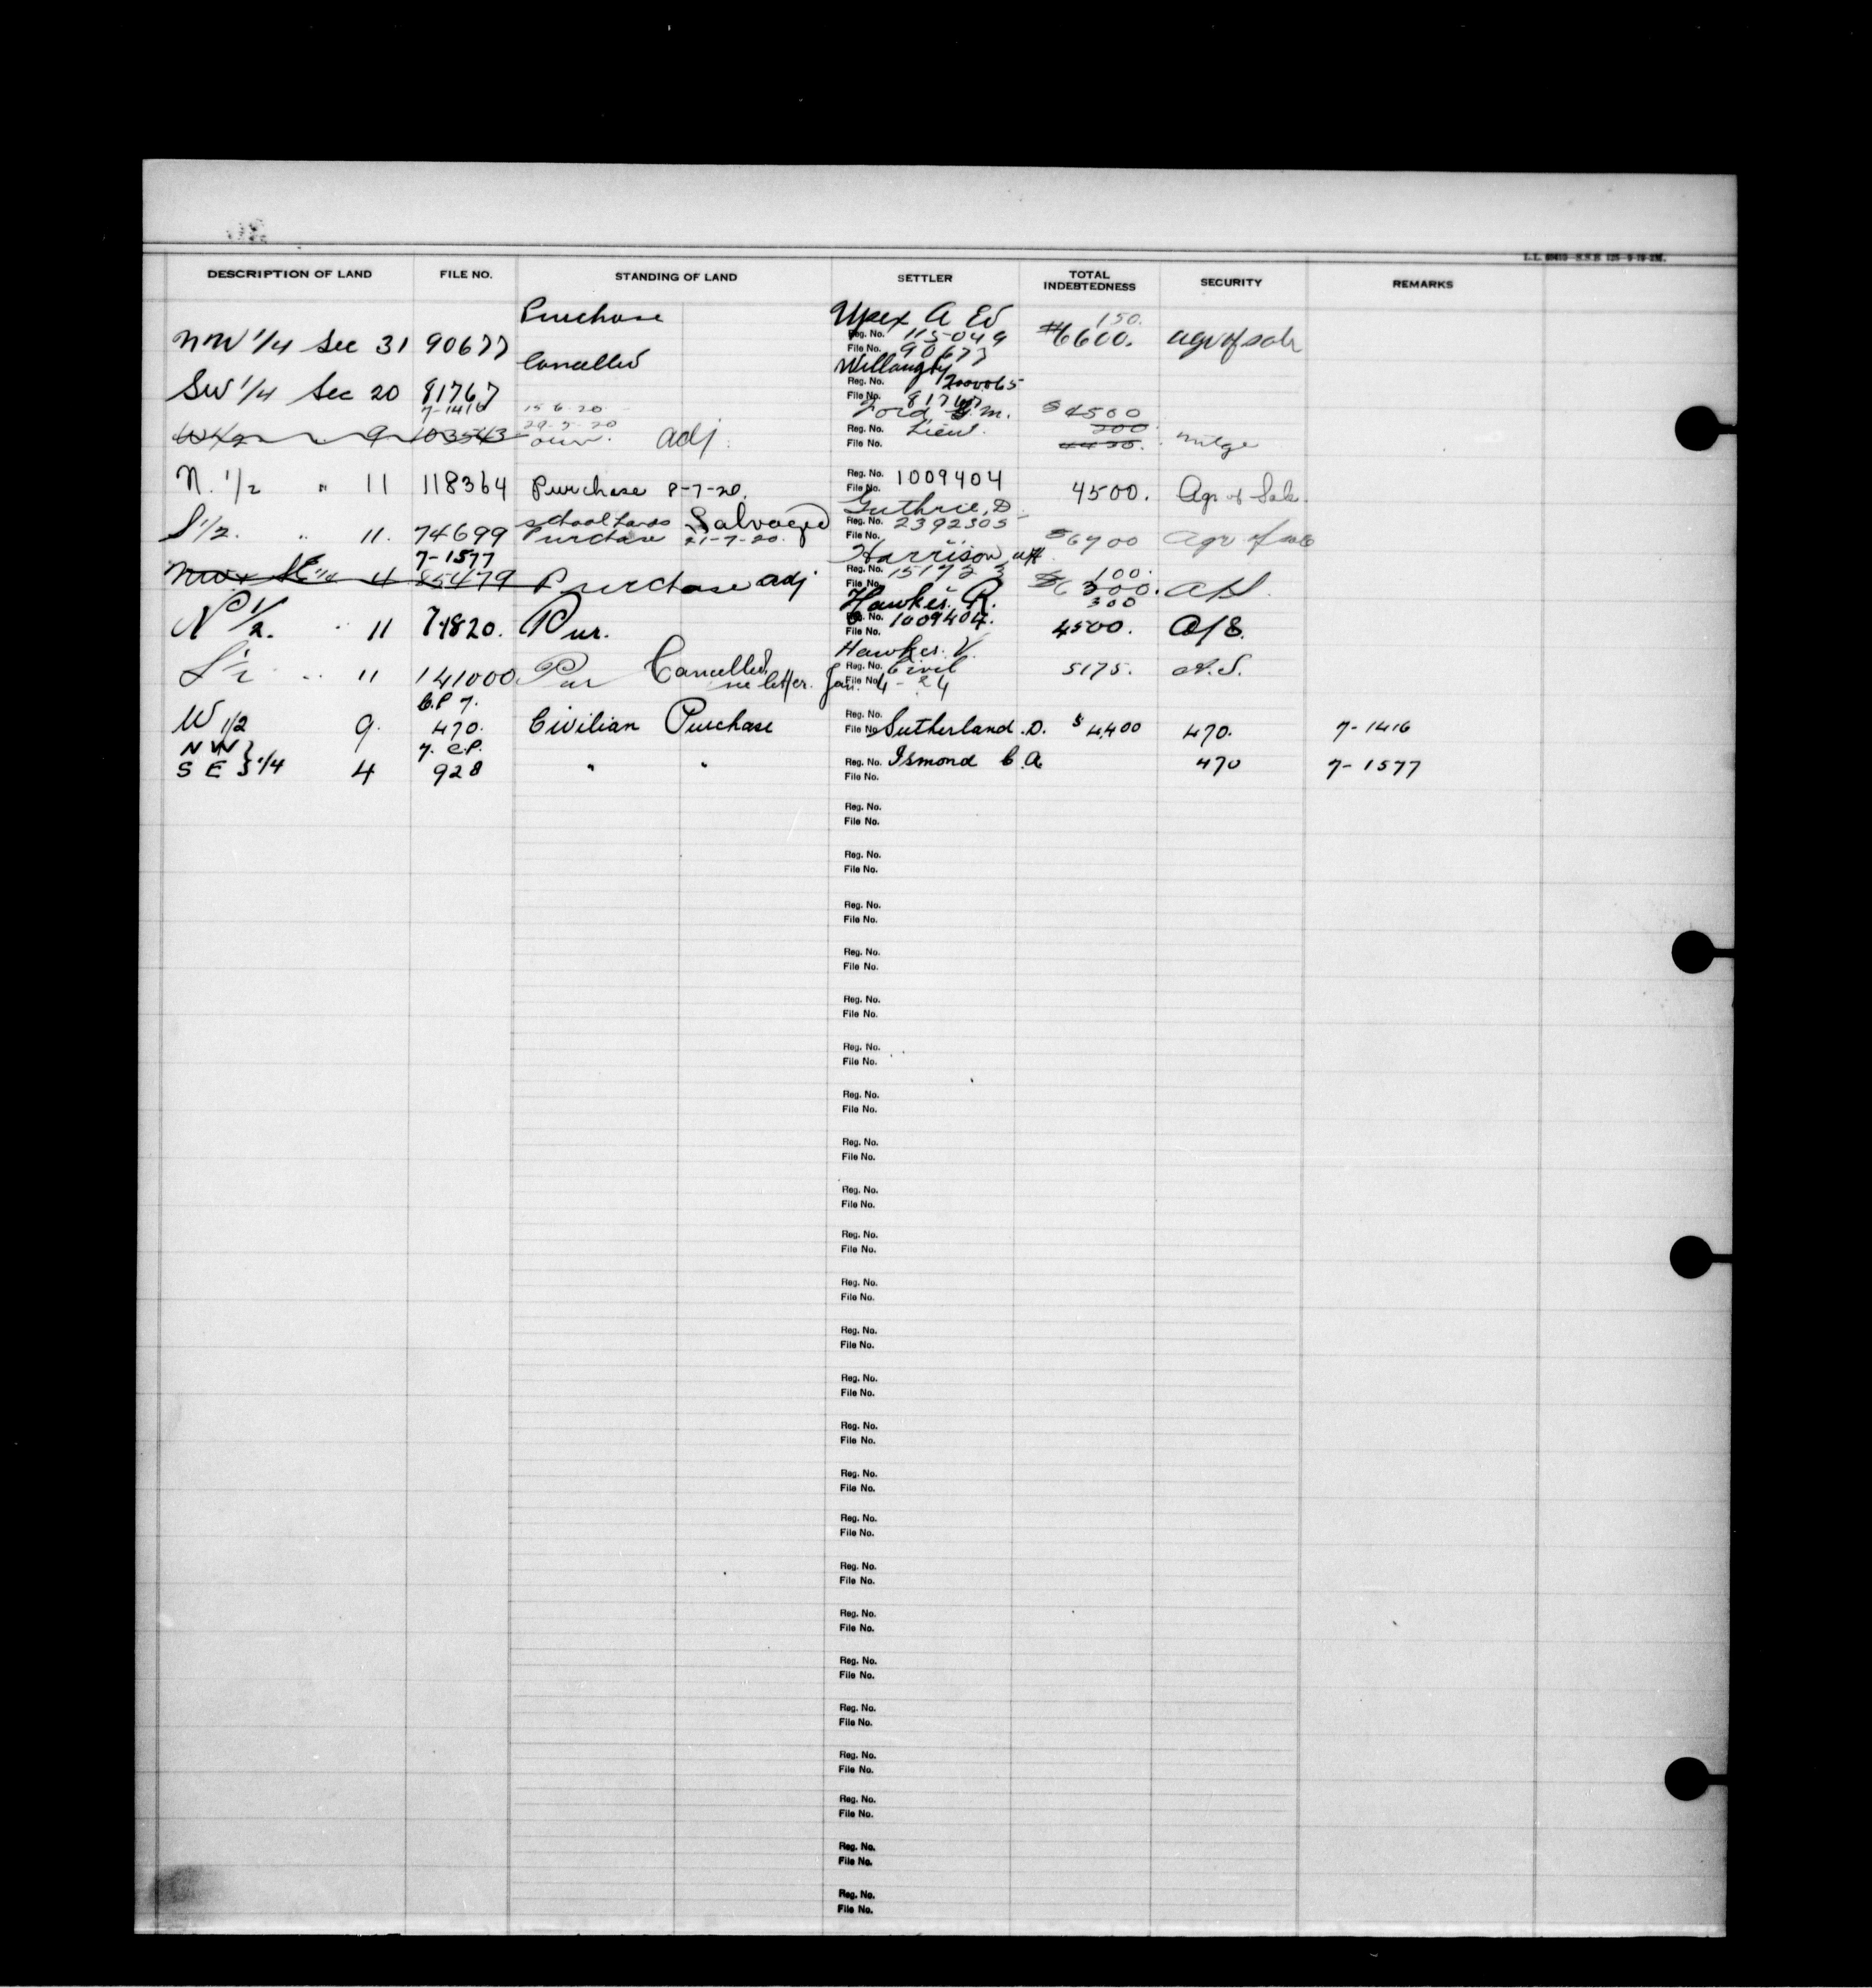 DESCRIPTION OF LAND FILE NO. STANDING OF LAND SETTLER TOTAL INDEBTEDNESS SECURITY REMARKS
Purchase Upex A Ed 150.
NW 1/4 Sec 31 90677 Reg. No. 115049 $6600. agr of sale
File No. 90677
Cancelled Willoughby
SW 1/4 Sec 20 81767 Reg. No. 2000065
File No. 81767
7-1416 15-6-20 Ford G.M. $4500
29-7-20 200
W 1/2 " 9 103543 our. adj. Reg. No. Lieut. 4450. mtge
File No.
N. 1/2 " 11 118364 Purchase 8-7-20. Reg. No. 1009404 4500. Agr of Sale
File No.
School Lands Salvaged Guthrie, D
S 1/2. " 11. 74699 Purchase 21-7-20. Reg. No. 2392305 $6700 Agr of sale
File No.
7-1577 Harrison 100.
NW & SE 1/4 4 85479 Purchase adj Reg. No. 151723 $6300. A/S.
File No.
Hawkes. R. 300
N 1/2. " 11 74820. Pur. Reg. No. 1009404. 4500. A/S.
File No.
Hawkes. V.
S 1/2 " 11 141000 Pur Cancelled Reg. No. Civil 5175. A.S.
see letter. Jan. File No. 4-24
C.P 7.
W 1/2 9. 470. Civilian Purchase Reg. No.
File No. Sutherland. D. $4,400 470. 7-1416
NW 7. C.P.
SE } 1/4 4 928 " " Reg. No. Ismond C.A. 470 7-1577
File No.
Reg. No.
File No.
Reg. No.
File No.
Reg. No.
File No.
Reg. No.
File No.
Reg. No.
File No.
Reg. No.
File No.
Reg. No.
File No.
Reg. No.
File No.
Reg. No.
File No.
Reg. No.
File No.
Reg. No.
File No.
Reg. No.
File No.
Reg. No.
File No.
Reg. No.
File No.
Reg. No.
File No.
Reg. No.
File No.
Reg. No.
File No.
Reg. No.
File No.
Reg. No.
File No.
Reg. No.
File No.
Reg. No.
File No.
Reg. No.
File No.
Reg. No.
File No.
Reg. No.
File No.